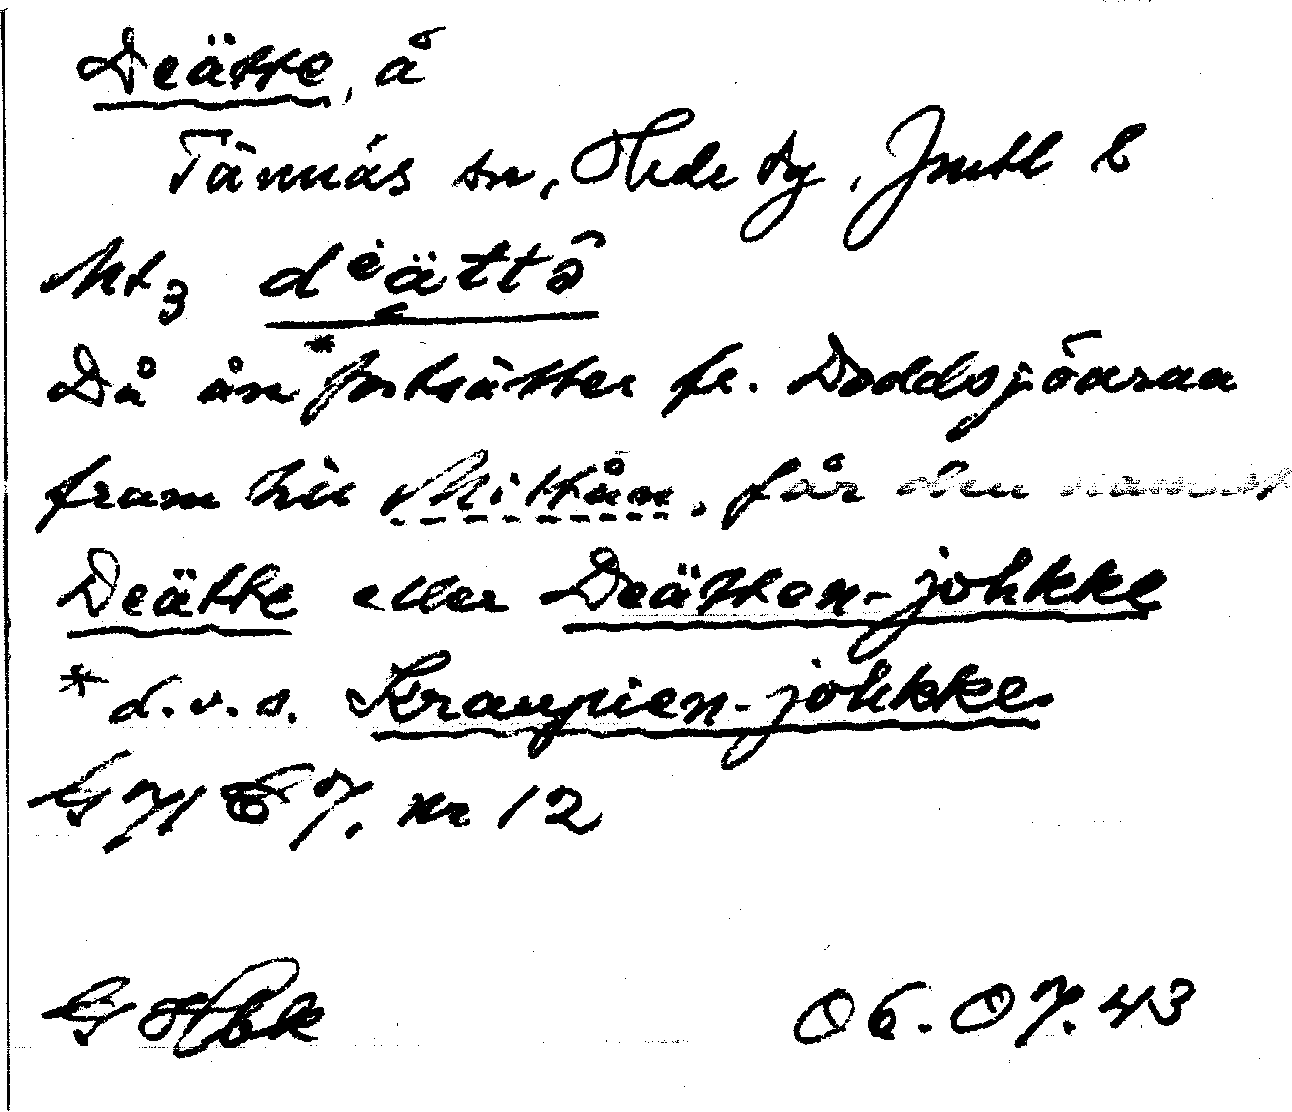 Deätte, å
Tännäs sn, Hede tg, Jmtl l
Mt3 dieättə̂
Då ån *fortsätter fr. Doddsjöarna
fram till Mittån, får den namnet
Deätte eller Deätten-johkke
* d.v.s. Kraupien-johkke.
nr 12
06.07.43